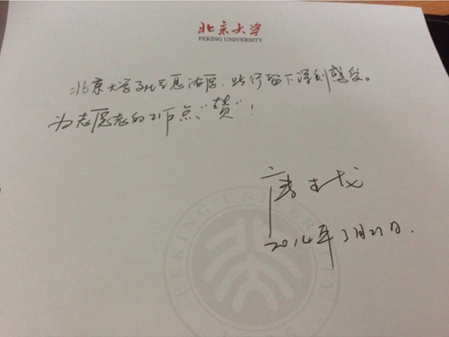 北京大学
PEKING UNIVERSITY
北京大学文化气息浓厚,此行留下深刻感受。
为志愿者的工作点"赞"!
2014年3月27日.
PEKING UNIVERSITY